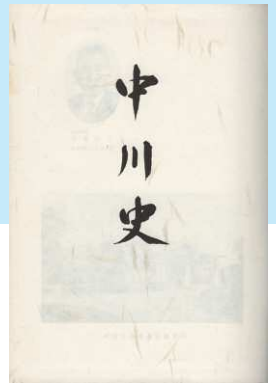 中川史